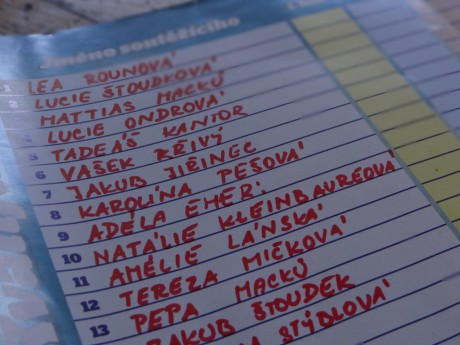 Jméno soutěžícího
1 LEA ROUNOVÁ
2 LUCIE ŠTOUDKOVÁ
MATTIAS MACKŮ
4 LUCIE ONDROVÁ
5 TADEÁŠ KANTOR
6 VAŠEK KŘIVÝ
7 JAKUB JIŘINEC
8 KAROLÍNA PEŠOVÁ
9 ADÉLA EHER.
10 NATÁLIE KLEINBAUEROVÁ
11 AMÉLIE LÁNSKÁ
12 TEREZA MIČKOVÁ
13 PEPA MACKŮ
JAKUB ŠTOUDEK
STÝDLOVÁ